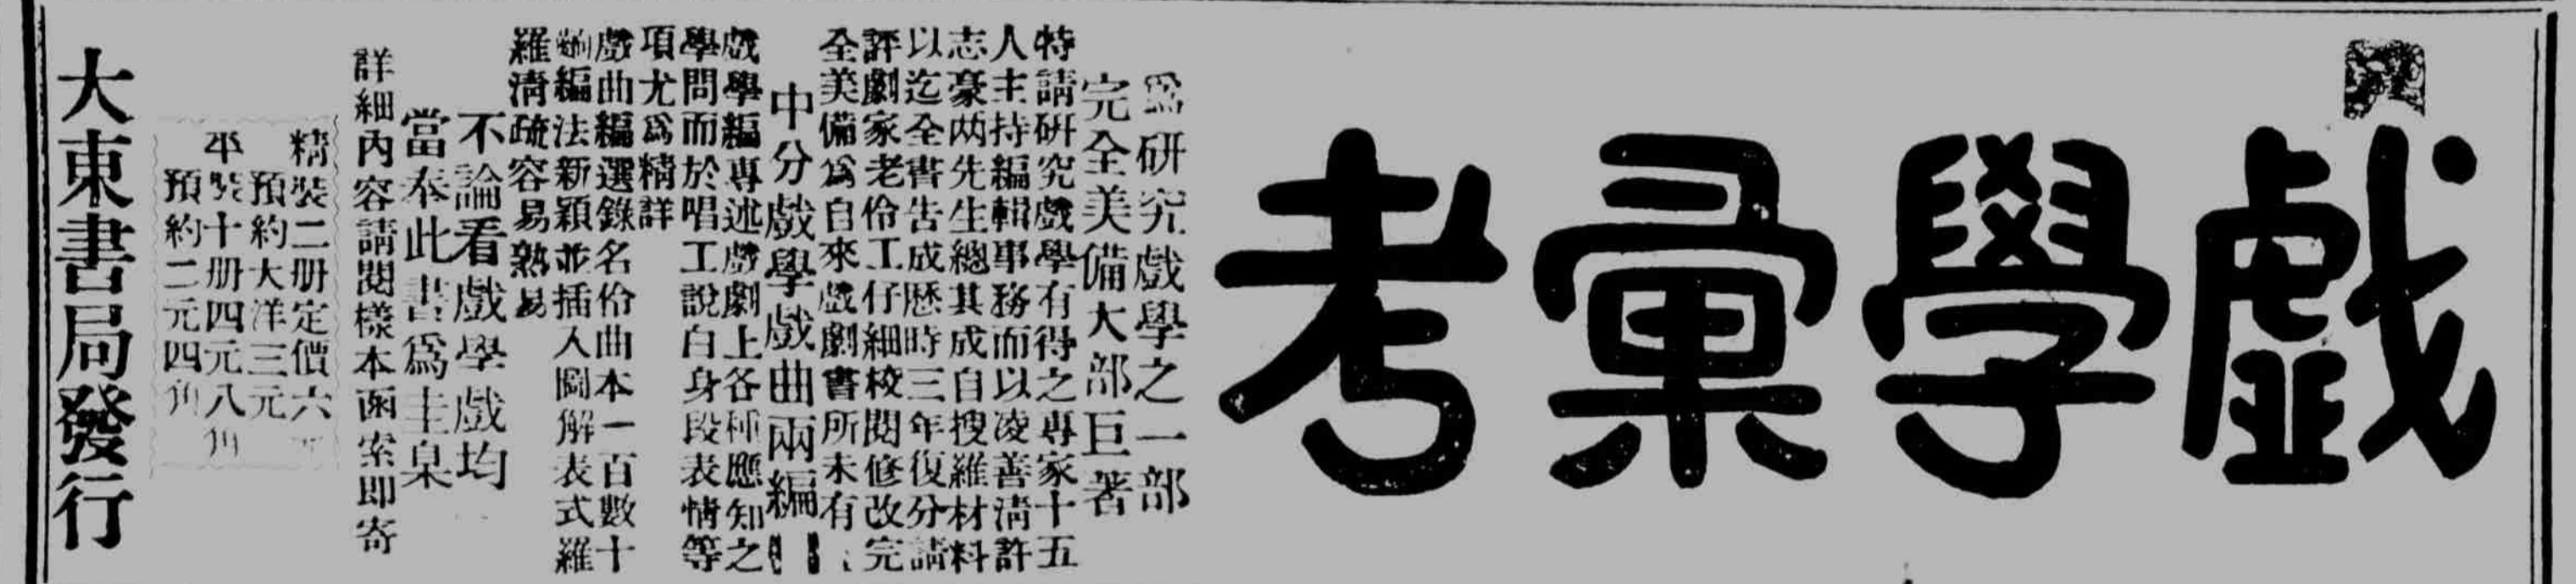 戲學彙考
爲研究戲學之一部
完全美備大部巨著
特請研究戲學有得之專家十五
人主持編輯事務而以凌善淸許
志豪两先生總其成自搜羅材料
以迄全書告成歷時三年復分請
評劇家老伶工仔細校閱修改完
全美備爲自來戲劇書所未有
中分戲學戲曲兩編
戲學編專述戲劇上各種應知之
學問而於唱工說白身段表情等
項尤爲精詳
戲曲編選錄名伶曲本一百數十
齣編法新穎並插入圖解表式羅
羅淸疏容易熟易
不論看戲學戲均
當奉此書爲圭臬
詳細內容請閱樣本函索即寄
精裝二册定價六
預約大洋三元
平裝十册四元八角
預約二元四角
大東書局發行